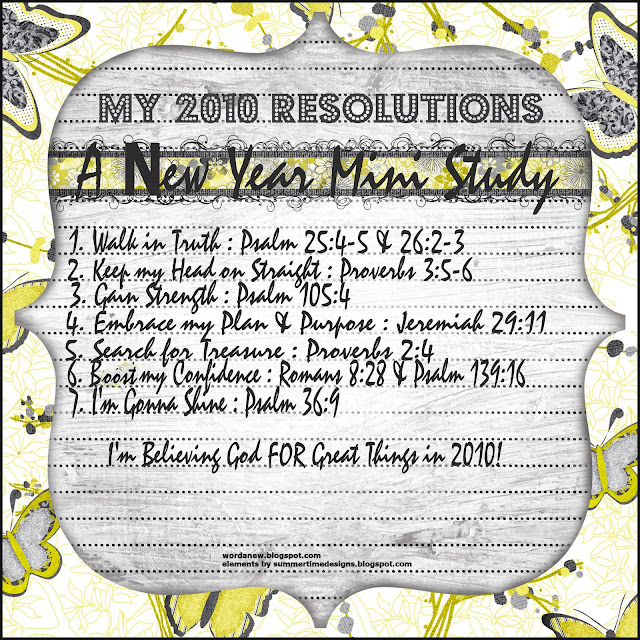 MY 2010 RESOLUTIONS
A New Year Mini Study
1. Walk in Truth : Psalm 25:4-5 & 26:2-3
2. Keep my Head on Straight : Proverbs 3:5-6
3. Gain Strength : Psalm 105:4
4. Embrace my Plan & Purpose : Jeremiah 29:11
5. Search for Treasure : Proverbs 2:4
6. Boost my Confidence : Romans 8:28 & Psalm 139:16
7. I'm Gonna Shine : Psalm 36:9
I'm Believing God FOR Great Things in 2010!
wordanew.blogspot.com
elements by summertimedesigns.blogspot.com